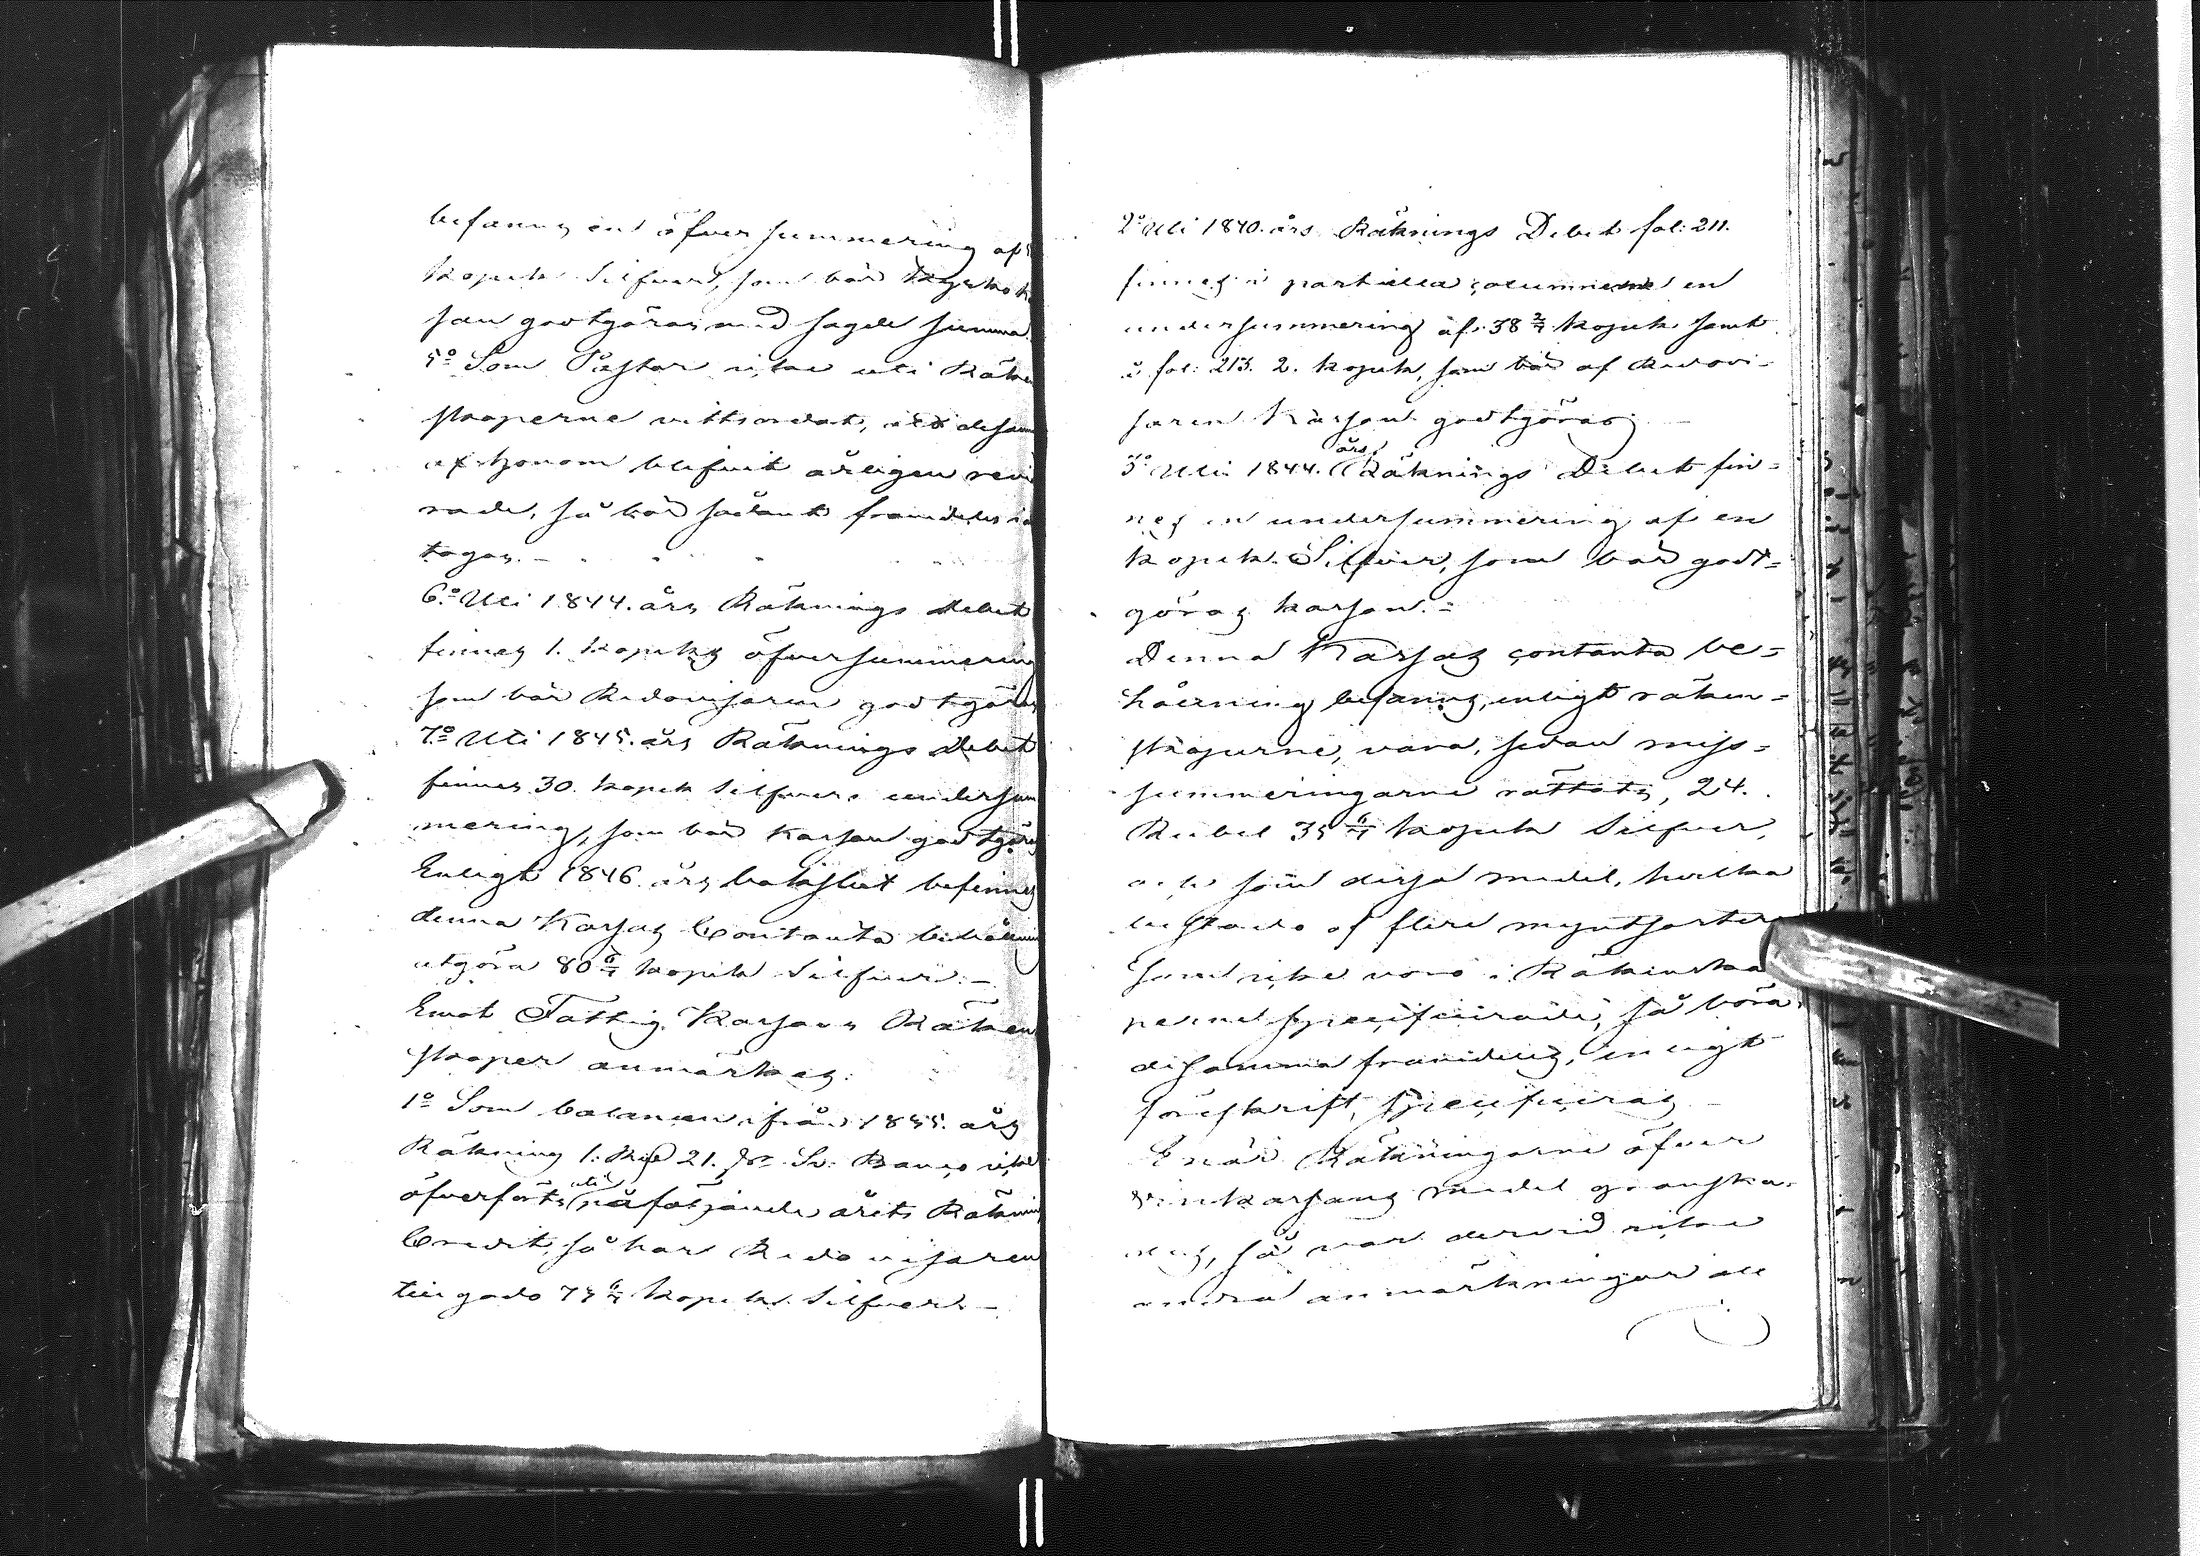 befanns en öfversummering af
kopek Silfver, som bör Kyrko k
san godtgöras med sagde summa.
5º Som Pastor icke uti Räken
skaperne vittsordat, att desam
af honom blifvit årligen revi
rade, så bör sådant framdeles ia
tagas. –
6º Uti 1844. års Räknings Debet
finnes 1. kopeks öfversummering
som bör Redovisaren godtgöras
7º Uti 1845. års Räknings Debet
finnes 30. kopek Silfvers undersum
mering, som bör Kassan godtgöras
Enligt 1846 års bokslut befinnes
denna Kassas Contanta behållning
utgöra 80 6/7 kopek Silfver. –
Emot Fattig Kassans Räken
skaper anmärkes:
1º Som balancen ifrån 1835. års
Räkning 1. Rd 21. s. Sv. Banco icke
öfverförts uti påföljande årets Räkning
Credit, så har Redovisaren
tillgodo 75 6/7 kopek Silfver. –
2º Uti 1840. års Räknings Debet fol: 211.
finnes i partiella columnene en
undersummering af 38 2/7 kopek samt
å fol: 213. 2. kopek, som bör af Redovi-
saren Kassan godtgöras. –
3º Uti 1844. års Räknings Debet fin=
nes en undersummering af en
kopek Silfver, som bör godt=
göras kassan. =
Denna Kassas contanta be=
hållning befanns, enligt räken=
skaperne, vara, sedan miss=
summeringarne rättats, 24.
Rubel 35 6/7 kopek Silfver,
och som dessa medel, hvilka
bestodo af flere myntsorter
som icke voro i Räkenska
perne specificerade, så böra
desamma framdeles, enligt
föreskrift, specificeras –
Enär Räkningarne öfver
Vinkassans medel granska-
des, så var dervid icke
andra anmärkningar att